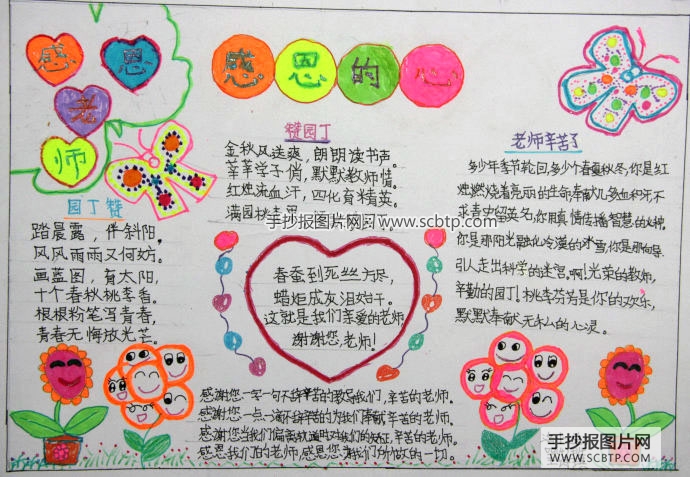 感恩
老
师
感恩的心
园丁赞
踏晨露,伴斜阳,
风风雨雨又何妨。
画蓝图,育太阳,
十个春秋桃李香。
根根粉笔写青春,
青春无悔放光芒。
赞园丁
金秋风送爽,朗朗读书声。
莘莘学子俏,默默教师情。
红烛流血汗,四化育精英。
满园桃李
手抄报图片网 www.scbtp.com
春蚕到死丝方尽,
蜡炬成灰泪始干。
这就是我们亲爱的老师
谢谢您,老师!
老师辛苦了
多少年季节轮回,多少个春夏秋冬,你是红
烛燃烧着亮丽的生命,奉献几多血和汗,不
求青史留英名,你用真情传播智慧的火种。
你是那阳光融化冷漠的冰雪,你是那向导
引人走出科学的迷宫。啊!光荣的教师,
辛勤的园丁!桃李芬芳是你的欢乐,
默默奉献无私的心灵。
感谢您一字一句不辞辛苦的教导我们,辛苦的老师。
感谢您一点一滴不辞辛苦的为我们奉献,辛苦的老师。
感谢您当我们偏离轨道时对我们的矫正,辛苦的老师。
感恩我们的老师,感恩您为我们所做的一切。
手抄报图片网
WWW.SCBTP.COM